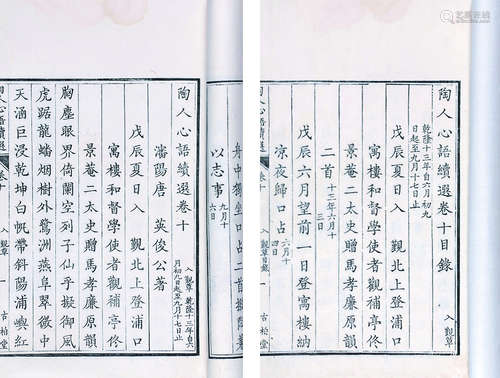 陶人心語續選卷十目錄
入覲草
乾隆十三年自六月初九
日起至九月十七日止
戊辰夏日入 覲北上登浦口
寓樓和督學使者觀補亭佟
景菴二太史贈馬孝廉原韻
二首 十三年六月十
三日
戊辰六月望前一日登寓樓納
涼夜歸口占 六月十
四日
陶人心語續選
卷十目錄
入覲草
一
古柏堂
舟中獨坐口占二首
以志事 九月十
六日
陶人心語續選卷十
入覲草 乾隆十三年自六
月初九日起至九月十七日止
瀋陽唐 英俊公著
戊辰夏日入 覲北上登浦口
寓樓和督學使者觀補亭佟
景菴二太史贈馬孝廉原韻
胸塵眼界倚闌空列子仙乎擬御風
虎踞龍蟠烟樹外鷺洲燕阜翠微中
天涵巨浸乾坤白帆帶斜陽浦嶼紅
陶人心語續選
卷十
入覲草
一
古柏堂